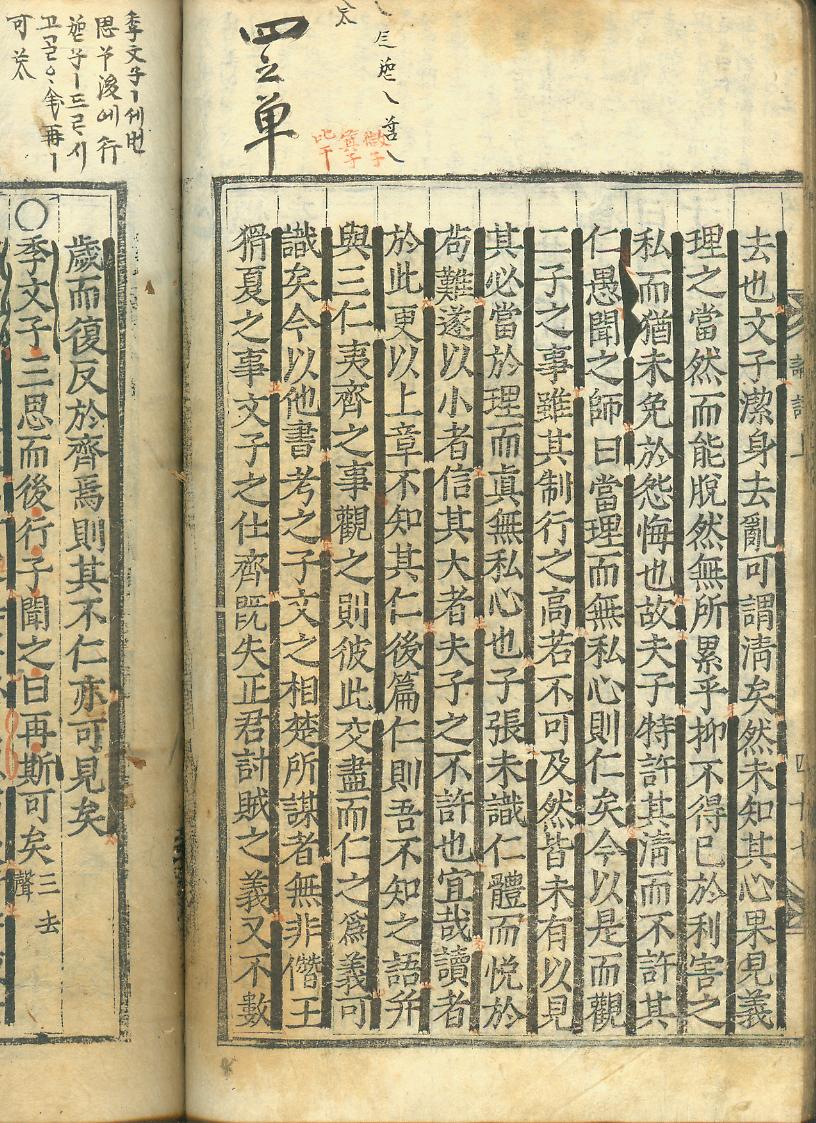 四之單
微子
箕子
比干
去也文子潔身去亂可謂淸矣然未知其心果見義
理之當然而能脫然無所累乎抑不得已於利害之
私而猶未免於怨悔也故夫子特許其淸而不許其
仁愚聞之師曰當理而無私心則仁矣今以是而觀
二子之事雖其制行之高若不可及然皆未有以見
其必當於理而眞無私心也子張未識仁體而悅於
苟難遂以小者信其大者夫子之不許也宜哉讀者
於此更以上章不知其仁後篇仁則吾不知之語幷
與三仁夷齊之事觀之則彼此交盡而仁之爲義可
識矣今以他書考之子文之相楚所謀者無非僭王
猾夏之事文子之仕齊旣失正君討賊之義又不數
季文子ㅣ세번
思𠃍後에行
可
歲而復反於齊焉則其不仁亦可見矣
○季文子三思而後行子聞之曰再斯可矣三去聲